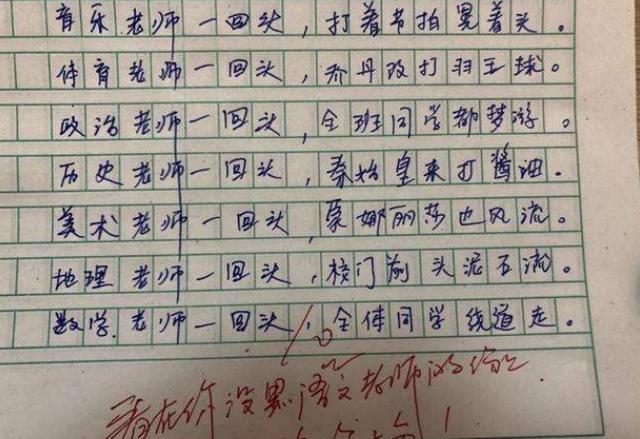 音乐老师一回头，打着节拍晃着头。
体育老师一回头，乔丹改打羽毛球。
政治老师一回头，全班同学都梦游。
历史老师一回头，秦始皇来打酱油。
美术老师一回头，蒙娜丽莎也风流。
地理老师一回头，校门前头泥石流。
数学老师一回头，全体同学绕道走。
10
看在你没黑语文老师的份上